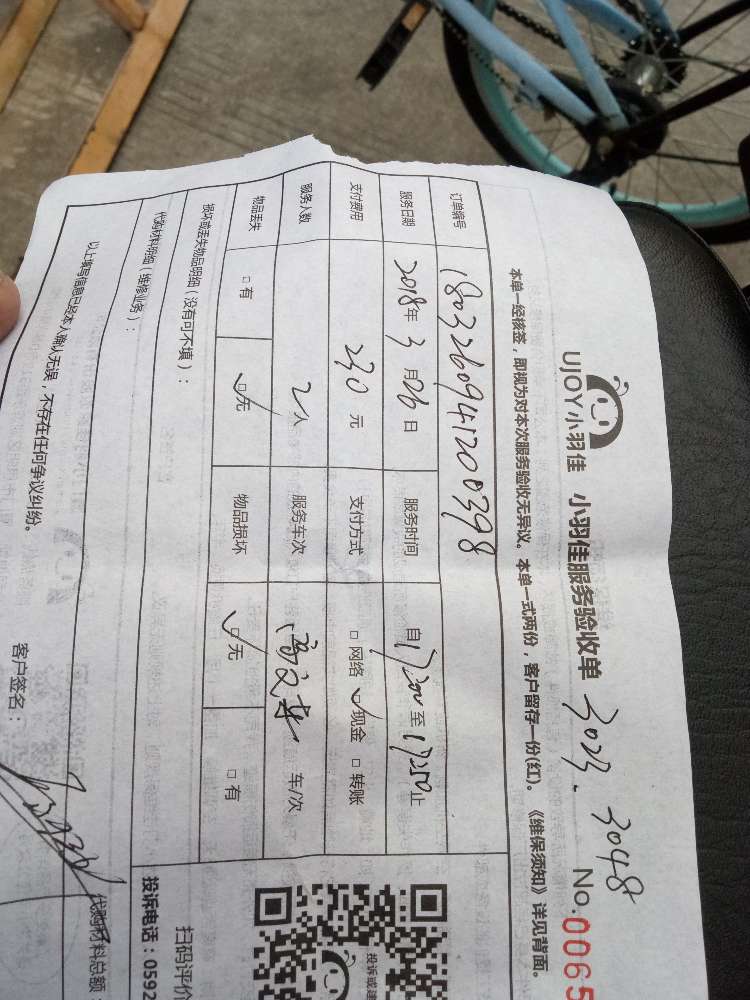 UJOY小羽佳 小羽佳服务验收单 3023. 3048 No.0065
本单一经核签，即视为对本次服务验收无异议。本单一式两份，客户留存一份(红)。《维保须知》详见背面。
订单编号 1803260941200398
服务日期 2018年3月26日 服务时间 自17:00至17:50止
支付费用 230元 支付方式 □网络 ☑现金 □转账
服务人数 2人 服务车次 车/次
物品丢失 □有 ☑无 物品损坏 ☑无 □有
损坏或丢失物品明细（没有可不填）：
代购材料明细（维修业务）：
代购材料总额
以上填写信息已经本人确认无误，不存在任何争议纠纷。 客户签名：
投诉或建
扫码评价
投诉电话：0592